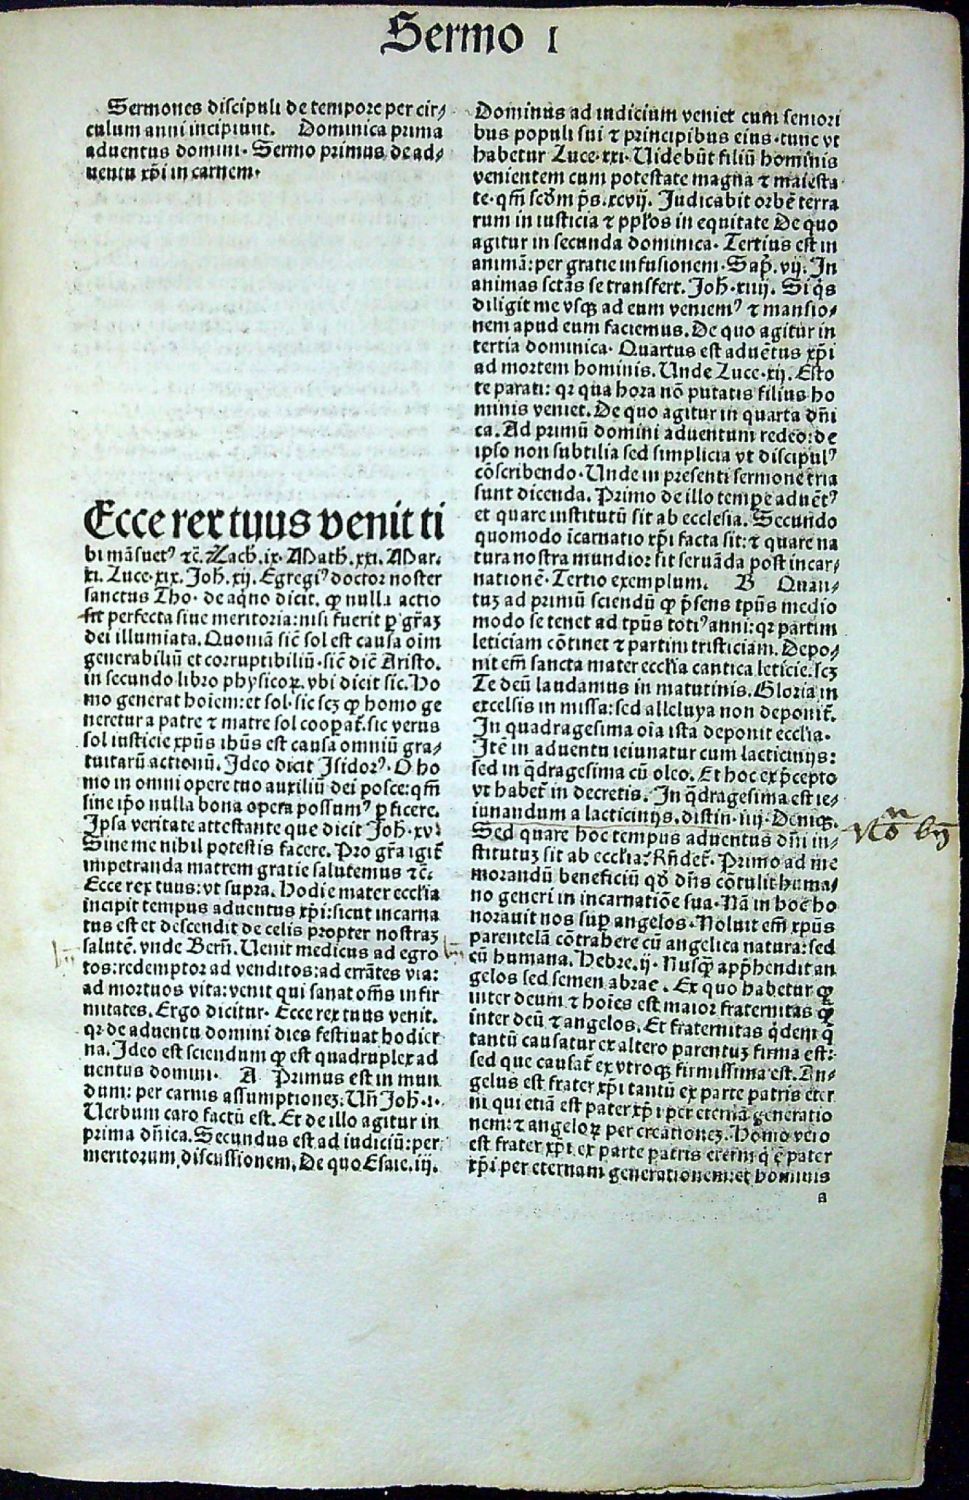 Sermo I
Sermones discipuli de tempore per cir⸗
culum anni incipiunt. Dominica prima
aduentus domini. Sermo primus de ad⸗
uentu xp̄i in carnem.
Ecce rex tuus venit ti
bi māsuetꝰ ⁊c̄. Zach̄. ix. Math̄. xxi. Mar.
xi. Luce. xix. Joh̄. xij. Egregiꝰ doctor noster
sanctus Tho. de aq̄no dicit. ꝙ nulla actio
fit perfecta siue meritoria: nisi fuerit ꝑ gr̄aꝫ
dei illumiata. Quoniā sic̄ sol est causa oīm
generabiliū et corruptibiliū. sic̄ dic̄ Aristo.
in secundo libro physicoꝝ. vbi dicit sic. Ho
mo generat hoīem: et sol. sic scꝫ ꝙ homo ge
neretur a patre ⁊ matre sol cooꝑat̄. sic verus
sol iusticie xp̄us ih̄us est causa omniū gra⸗
tuitarū actionū. Ideo dicit Isidorꝰ. O ho
mo in omni opere tuo auxiliū dei posce: qm̄
sine ip̄o nulla bona opera possumꝰ ꝑficere.
Ipsa veritate attestante que dicit Joh̄. xv.
Sine me nihil potestis facere. Pro gr̄a igit̄
impetranda matrem gratie salutemus ⁊c̄.
Ecce rex tuus: vt supra. Hodie mater eccl̄ia
incipit tempus aduentus xp̄i: sicut incarna
tus est et descendit de celis propter nostraꝫ
salutē. vnde Bern̄. Uenit medicus ad egro
tos: redemptor ad venditos: ad errātes via:
ad mortuos vita: venit qui sanat om̄s infir
mitates. Ergo dicitur. Ecce rex tuus venit.
qꝛ de aduentu domini dies festiuat hodier
na. Ideo est sciendum ꝙ est quadruplex ad
uentus domini. A Primus est in mun
dum: per carnis assumptioneꝫ: Un̄ Joh̄. i.
Uerbum caro factū est. Et de illo agitur in
prima dn̄ica. Secundus est ad iudiciū: per
meritorum discussionem. De quo Esaie. iij.
Dominus ad iudicium veniet cum seniori
bus populi sui ⁊ principibus eius. tunc vt
habetur Luce. xxi. Uidebūt filiū hominis
venientem cum potestate magna ⁊ maiesta
te. qm̄ scd̄m p̄s. xcvij. Judicabit orbē terra
rum in iusticia ⁊ ppl̄os in equitate De quo
agitur in secunda dominica. Tertius est in
animā: per gratie infusionem. Sap̄. vij. In
animas sctās se transfert. Joh̄. xiiij. Si q̄s
diligit me vsqꝫ ad eum veniemꝰ ⁊ mansio⸗
nem apud eum faciemus. De quo agitur in
tertia dominica. Quartus est aduētus xp̄i
ad mortem hominis. Unde Luce. xij. Esto
te parati: qꝛ qua hora nō putatis filius ho
minis veniet. De quo agitur in quarta dn̄i
ca. Ad primū domini aduentum redeo: de
ipso non subtilia sed simplicia vt discipulꝰ
cōscribendo. Unde in presenti sermone tria
sunt dicenda. Primo de illo tempe aduētꝰ
et quare institutū sit ab ecclesia. Secundo
quomodo īcarnatio xp̄i facta sit: ⁊ quare na
tura nostra mundior sit seruāda post incar⸗
nationē. Tertio exemplum. B Quan⸗
tuꝫ ad primū sciendū ꝙ p̄sens tp̄us medio
modo se tenet ad tp̄us totiꝰ anni: qꝛ partim
leticiam cōtinet ⁊ partim tristiciam. Depo⸗
nit em̄ sancta mater eccl̄ia cantica leticie. scꝫ
Te deū laudamus in matutinis. Gloria in
excelsis in missa: sed alleluya non deponit̄.
In quadragesima oīa ista deponit eccl̄ia.
Itē in aduentu ieiunatur cum lacticinijs:
sed in q̄dragesima cū oleo. Et hoc ex p̄cepto
vt habet̄ in decretis. In q̄dragesima est ie⸗
iunandum a lacticinijs. distin. iiij. Deniqꝫ.
Sed quare hoc tempus aduentus dn̄i in⸗
stitutuꝫ sit ab eccl̄ia? Rn̄det̄. Primo ad me
morandū beneficiū qd̄ dn̄s cōtulit huma⸗
no generi in incarnatiōe sua. Nā in hoc ho
norauit nos suꝑ angelos. Noluit em̄ xp̄us
parentelā cōtrahere cū angelica natura: sed
cū humana. Hebre. ij. Nusq̄ app̄hendit an
gelos sed semen abrae. Ex quo habetur ꝙ
inter deum ⁊ hoīes est maior fraternitas q̄
inter deū ⁊ angelos. Et fraternitas q̄dem q̄
tantū causatur ex altero parentuꝫ firma est:
sed que causat̄ ex vtroqꝫ firmissima est. An⸗
gelus est frater xp̄i tantū ex parte patris eter
ni qui etiā est pater xp̄i per eternā generatio
nem: ⁊ angeloꝝ per creationeꝫ. Homo vero
est frater xp̄i ex parte patris eterni q̄ ē pater
xp̄i per eternam generationem: et hominis
a